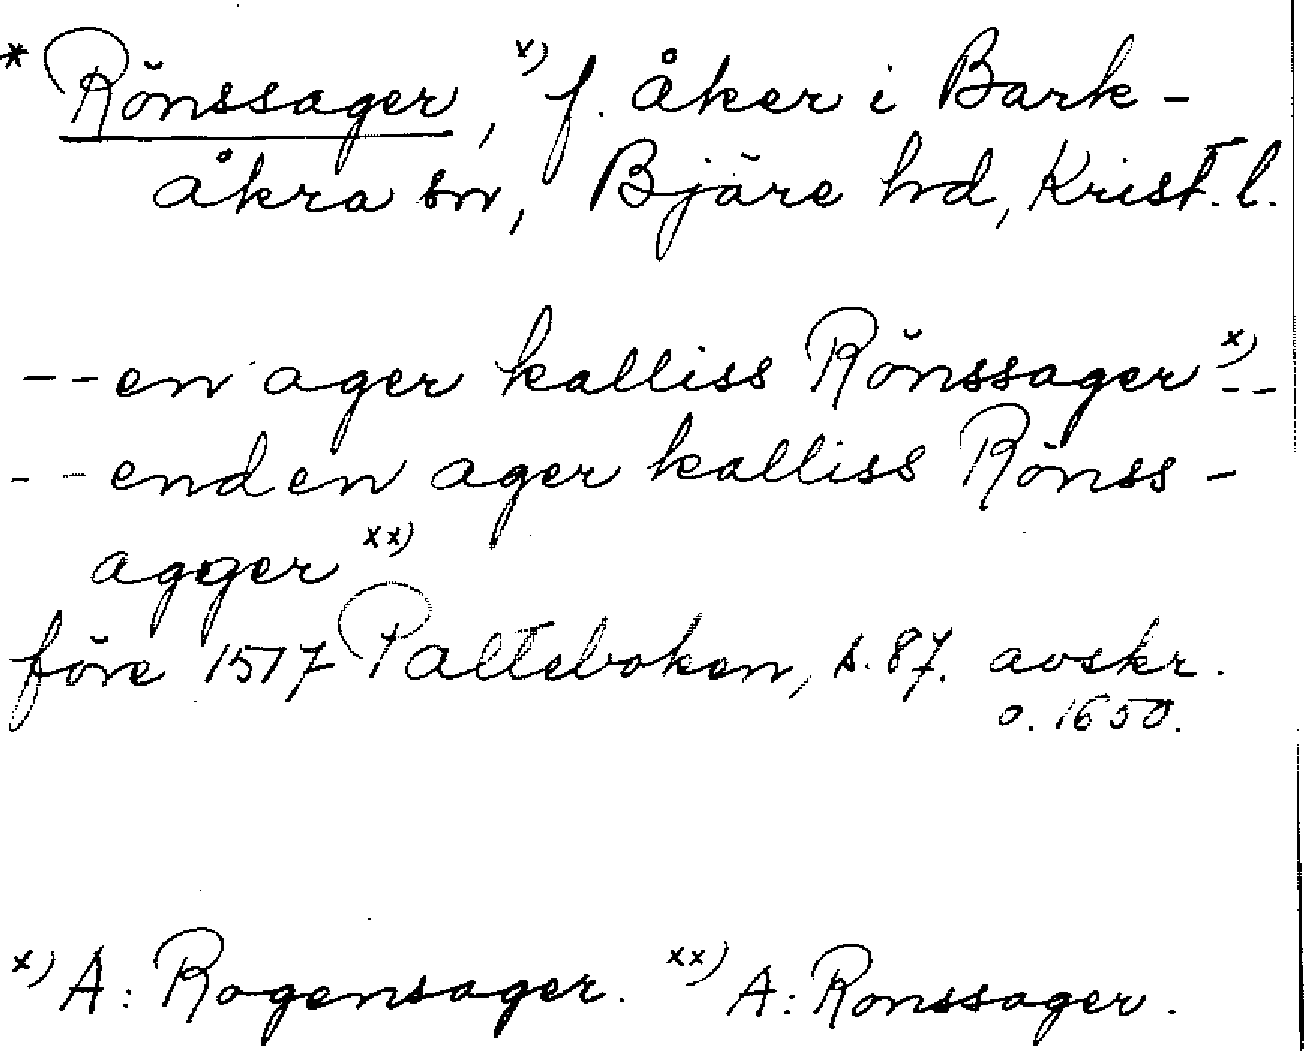 * Rönssager, x) f. åker i Bark-
åkra sn, Bjäre hd, Krist. l.
--en ager kalliss Rönssager x)--
--enden ager kalliss Rönss-
agger xx)
före 1517 Palteboken, s. 87. avskr.
o. 1650.
x) A: Rogensager. xx) A: Ronssager.